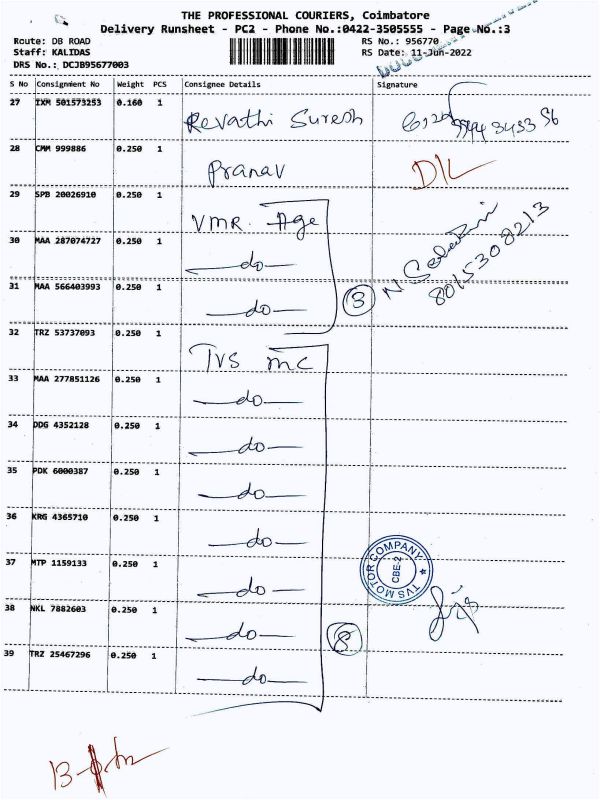 THE PROFESSIONAL COURIERS, Coimbatore
Delivery Runsheet - PC2 - Phone No.:0422-3505555 - Page No.:3
Route: DB ROAD RS No.: 956770
Staff: KALIDAS RS Date: 11-Jun-2022
DRS No.: DCJB95677003
S No Consignment No Weight PCS Consignee Details Signature
27 IXM 501573253 0.160 1 Revathi Suresh
28 CMM 999886 0.250 1 Pranav D/L
29 SPB 20026910 0.250 1 VMR Age
30 MAA 287074727 0.250 1 do
31 MAA 566403993 0.250 1 do 3 N 8015308213
32 TRZ 53737093 0.250 1 TVS MC
33 MAA 277851126 0.250 1 do
34 DDG 4352128 0.250 1 do
35 PDK 6000387 0.250 1 do
36 KRG 4365710 0.250 1 do
37 MTP 1159133 0.250 1 do TVS MOTOR COMPANY CBE-2
38 NKL 7882603 0.250 1 do 8
39 TRZ 25467296 0.250 1 do